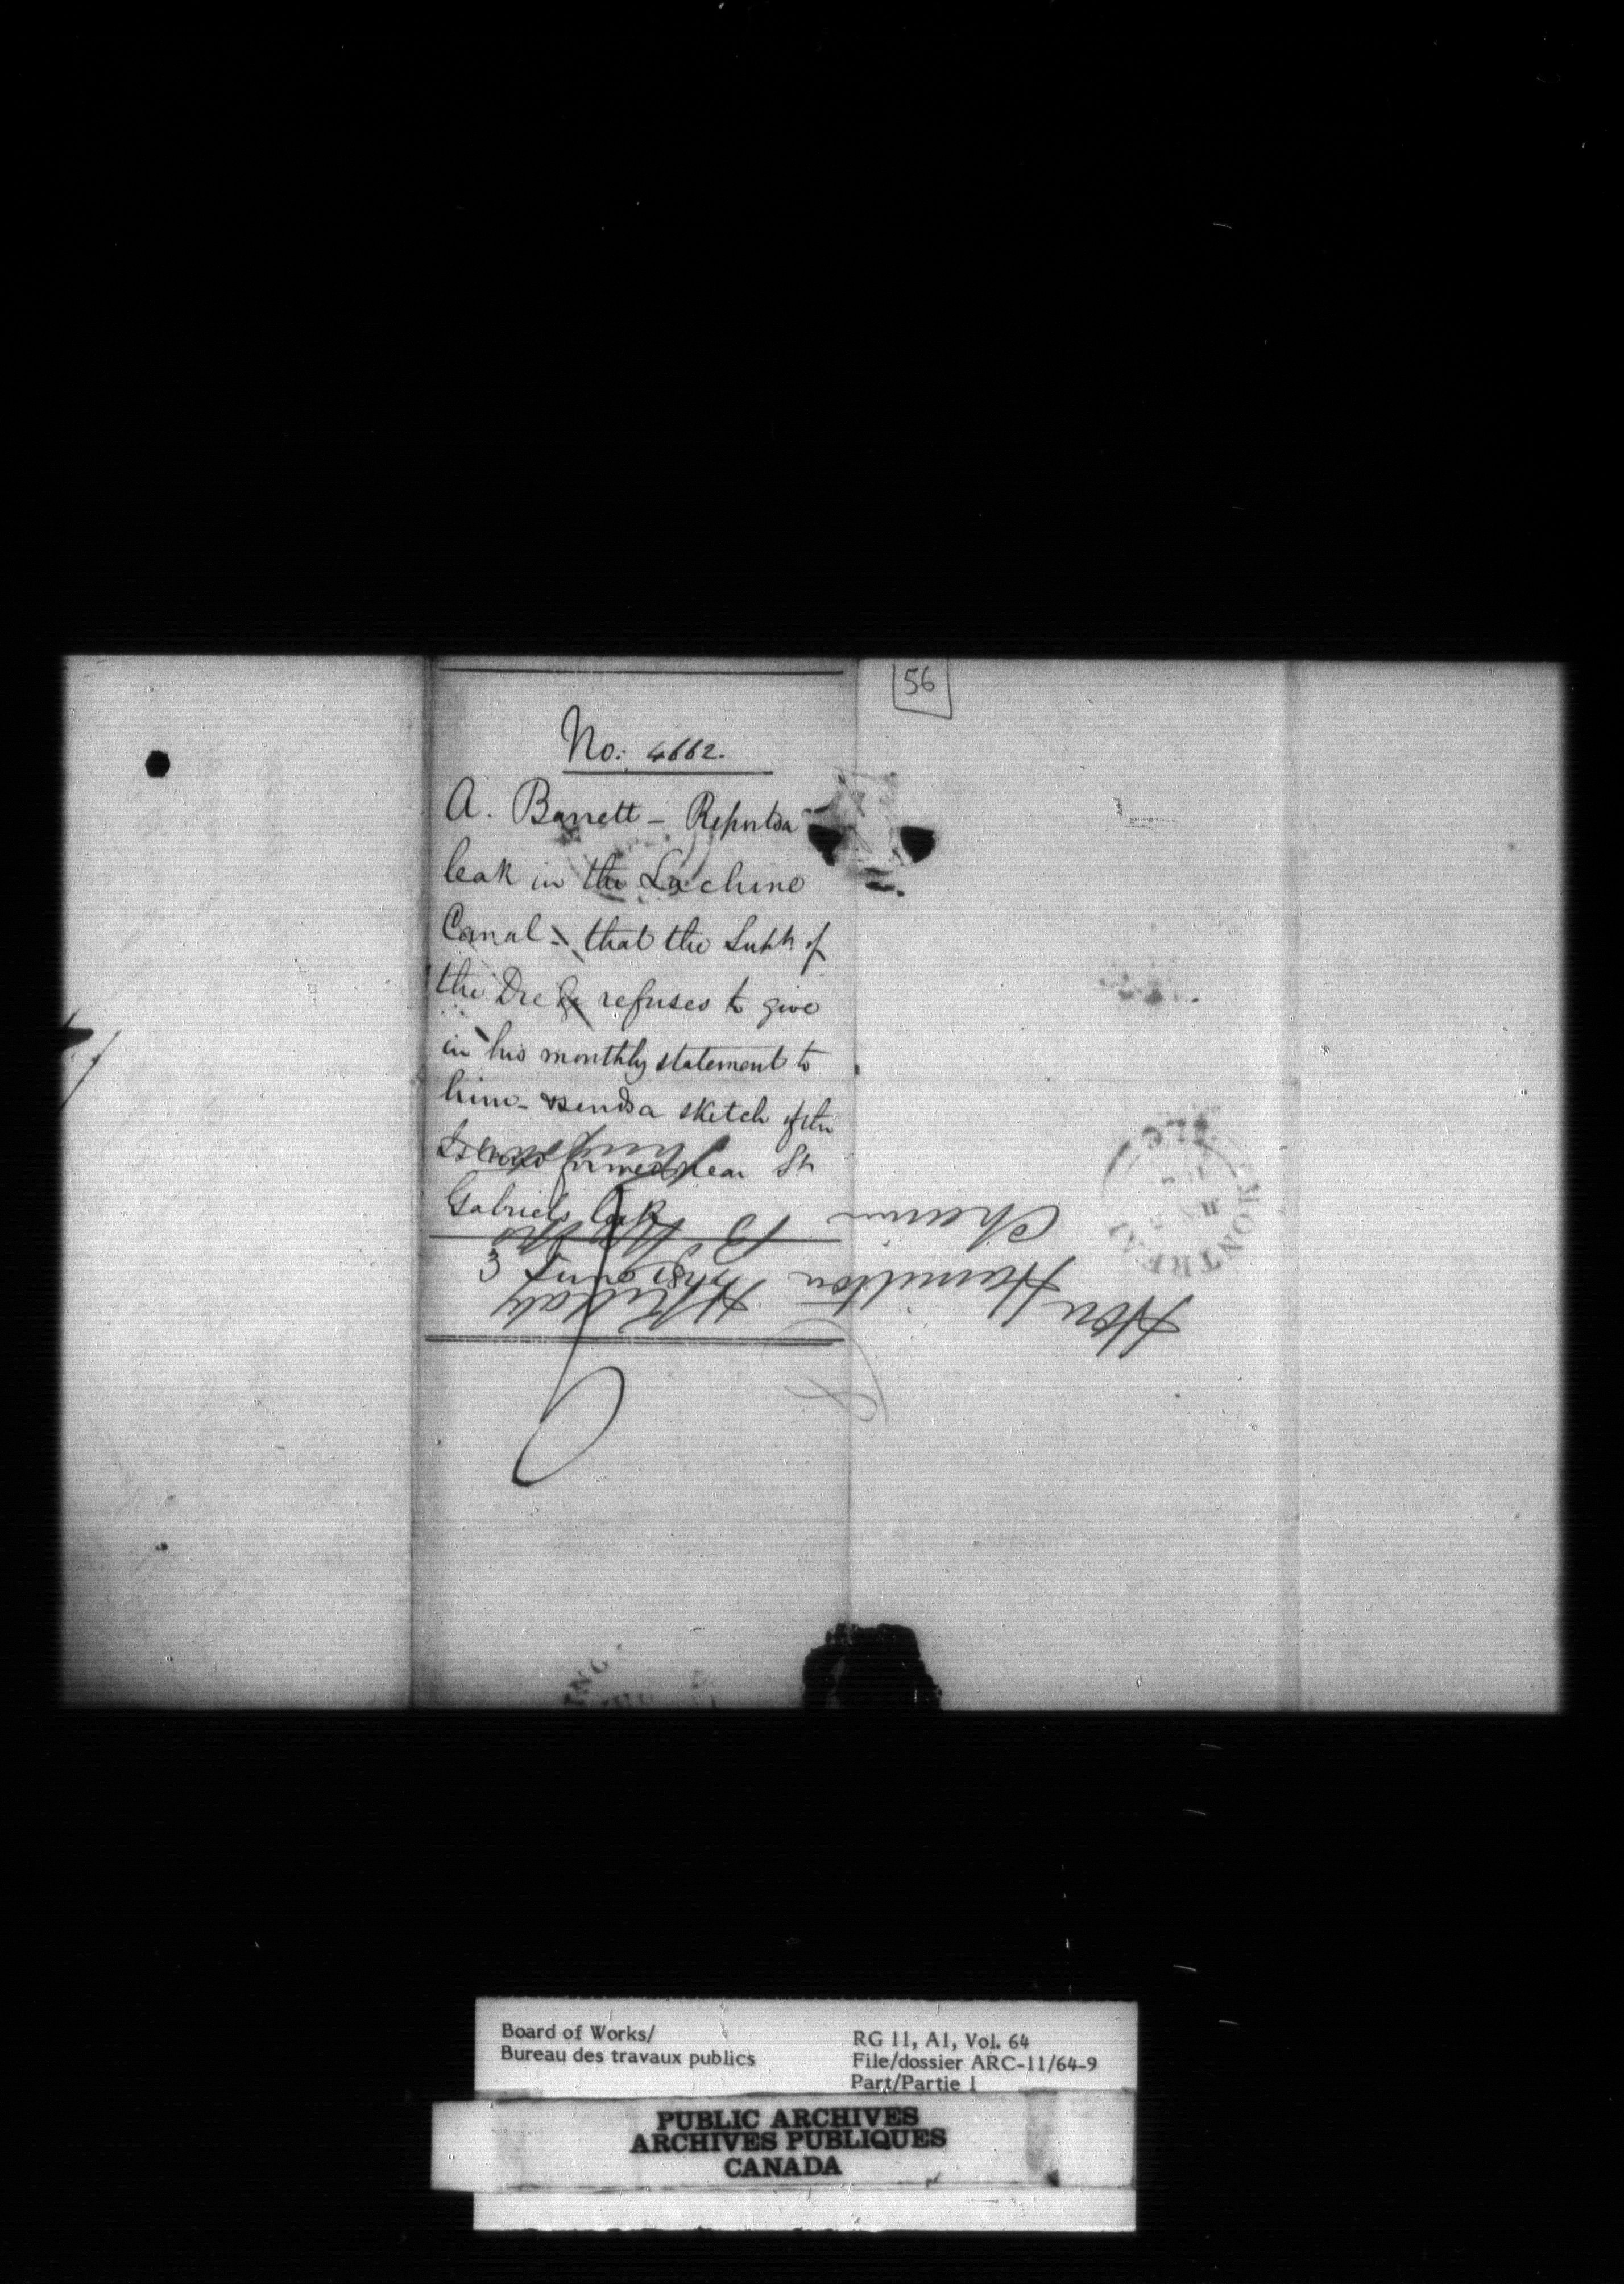 56
No: 4662.
A. Barrett - Reports a
leak in the Lachine
Canal - that the Supt of
the Dredge refuses to give
in his monthly statement to
him - & sends a sketch of the
formed near St
Gabriels Lock
3 June 184
Hon H
Hamilton H Killaly
Chairman B Works
MONTREAL
Board of Works/
Bureau des travaux publics
RG 11, A1, Vol. 64
File/dossier ARC-11/64-9
Part/Partie 1
PUBLIC ARCHIVES
ARCHIVES PUBLIQUES
CANADA